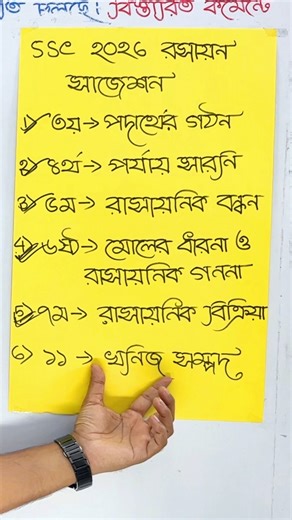 চলছে: বিস্তারিত কমেন্টে
SSC ২০২৬ রসায়ন
সাজেশন
১) ৩য় → পদার্থের গঠন
২) ৪র্থ → পর্যায় সারনি
৩) ৫ম → রাসায়নিক বন্ধন
৪) ৬ষ্ঠ → মোলের ধারনা ও
রাসায়নিক গননা
৫) ৭ম → রাসায়নিক বিক্রিয়া
৬) ১১ → খনিজ সম্পদ